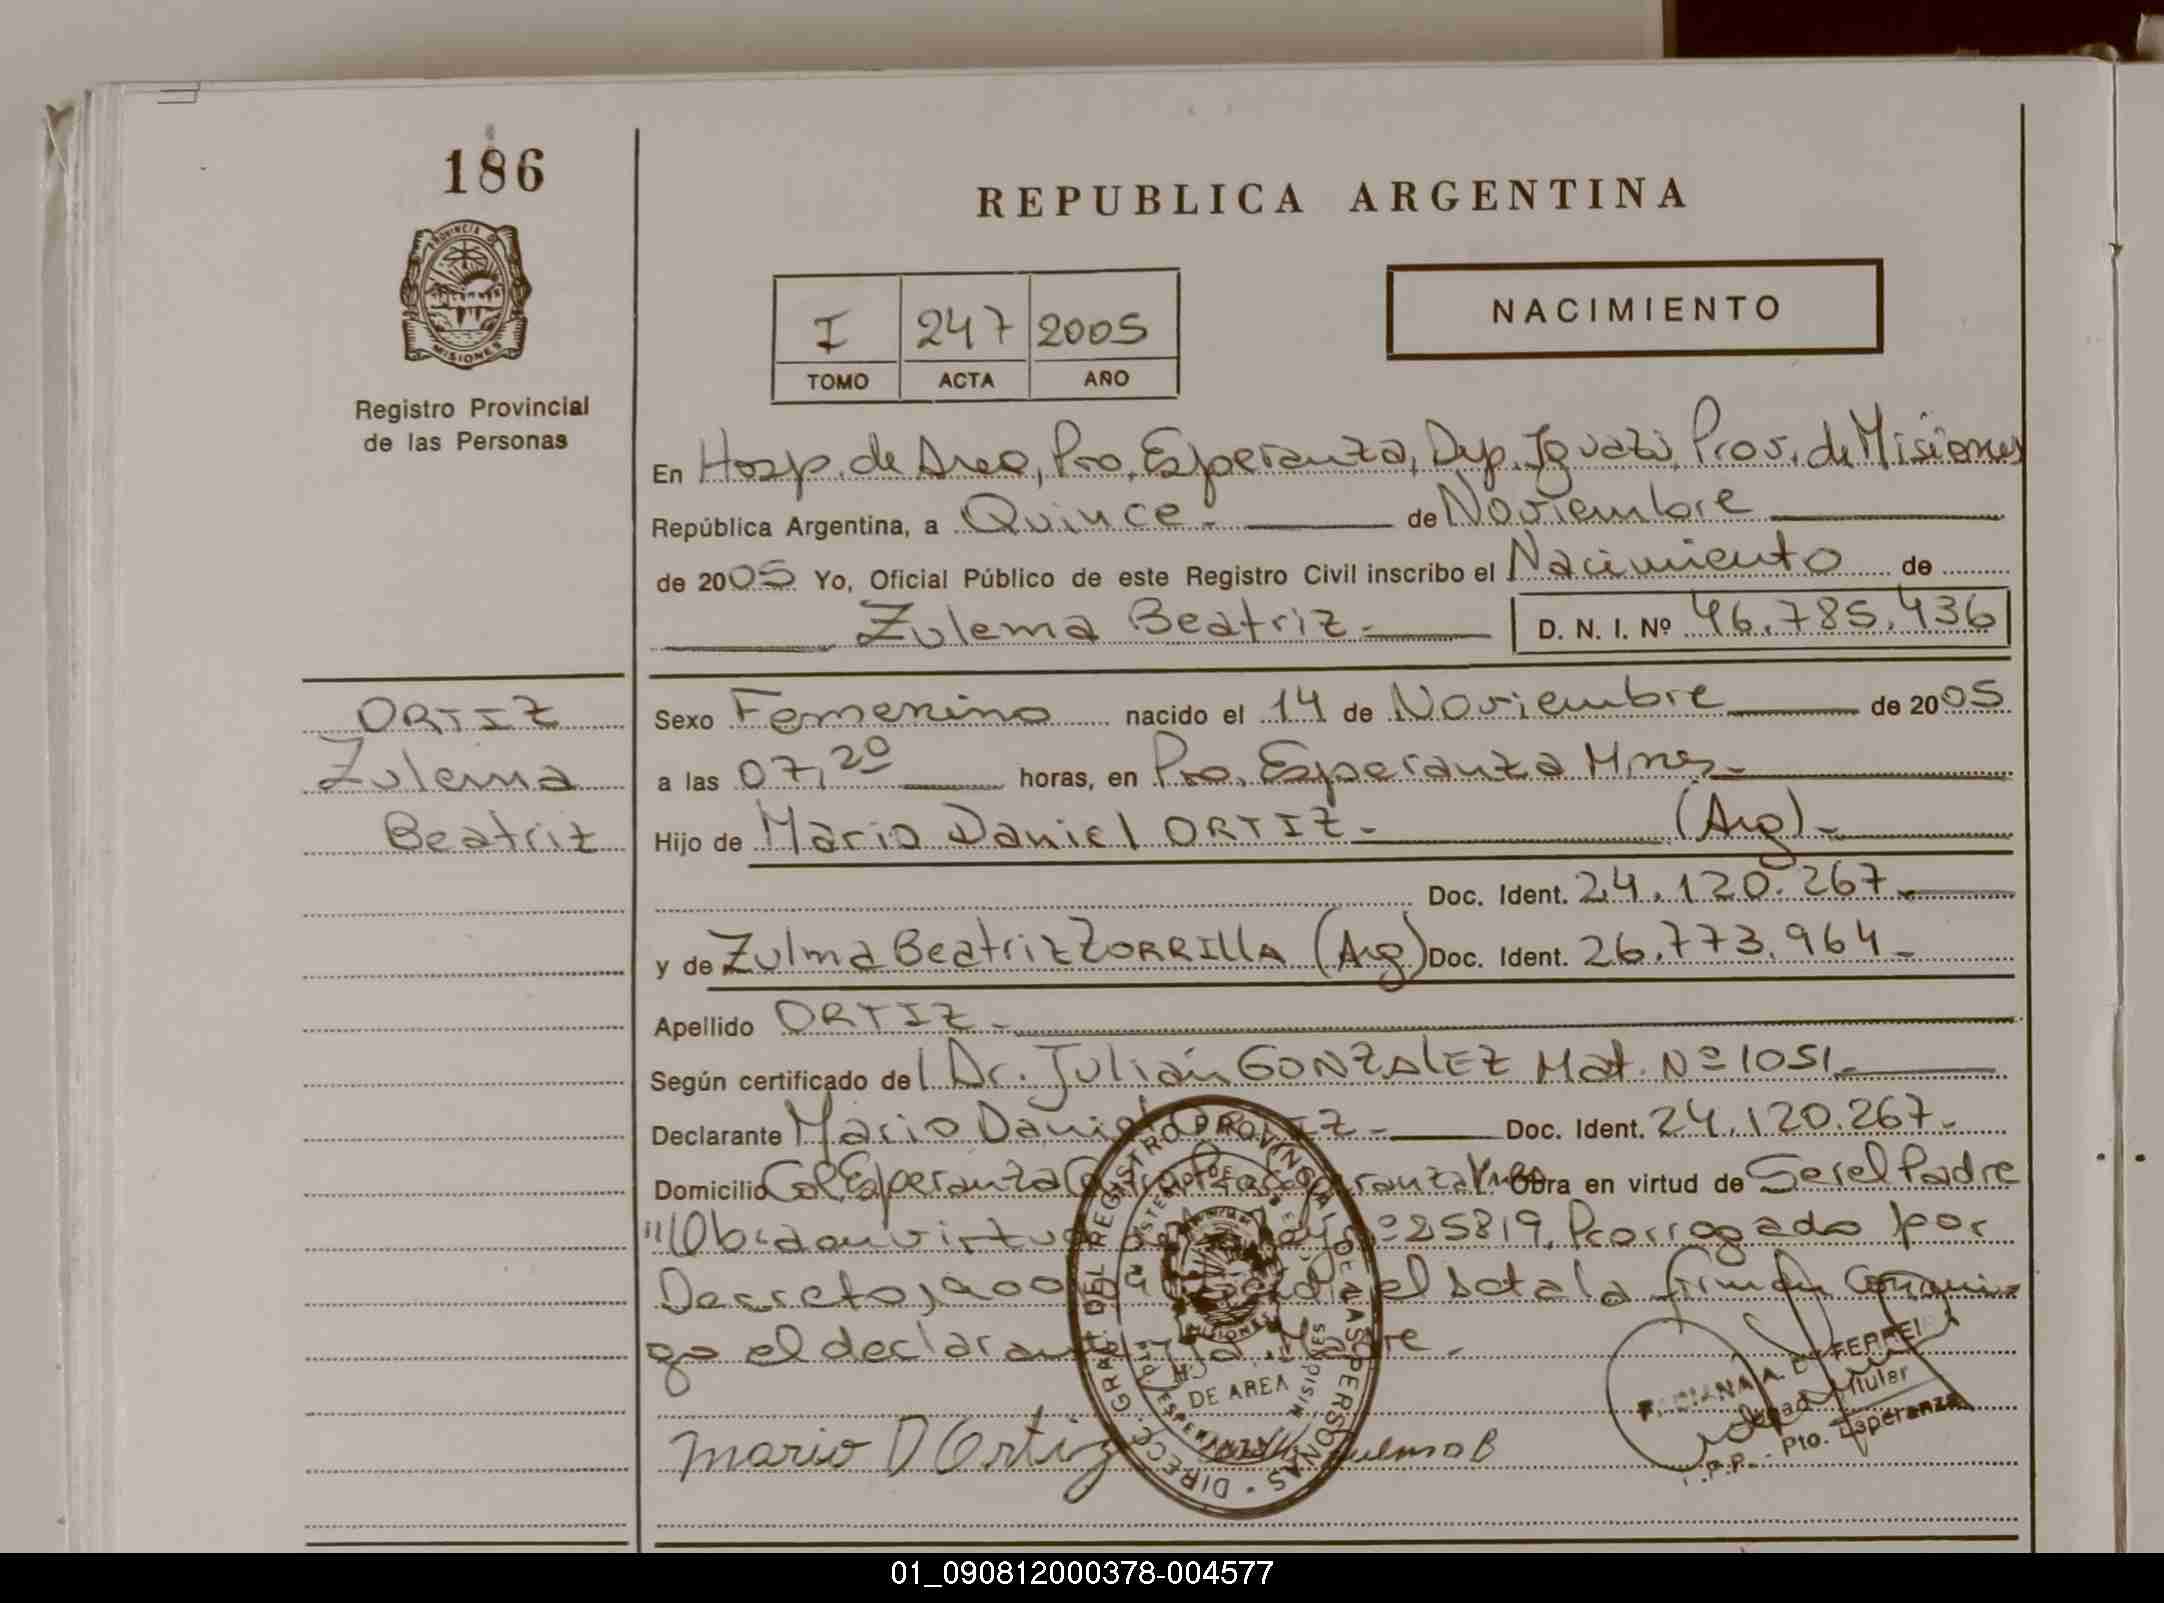 186
PROVINCIA DE
MISIONES
Registro Provincial
de las Personas
REPUBLICA ARGENTINA
I 247 2005
TOMO ACTA AÑO
NACIMIENTO
En Hosp. de Area, Pto. Esperanza, Dep. Iguazú, Prov. de Misiones
República Argentina, a Quince.- de Noviembre
de 2005 Yo, Oficial Público de este Registro Civil inscribo el Nacimiento de
Zulema Beatriz.- D. N. I. Nº 46.785.436
ORTIZ
Zulema
Beatriz
Sexo Femenino nacido el 14 de Noviembre de 2005
a las 07,20 horas, en Pto. Esperanza Mnes.-
Hijo de Mario Daniel ORTIZ.- (Arg).-
Doc. Ident. 24.120.267.-
y de Zulma Beatriz ZORRILLA (Arg) Doc. Ident. 26.773.964.-
Apellido ORTIZ.-
Según certificado del Dr. Julián GONZALEZ Mat. Nº 1051.-
Declarante Mario Daniel ORTIZ.- Doc. Ident. 24.120.267.-
Domicilio Col. Esperanza Esperanza Mnes Obra en virtud de Ser el Padre
"Obran virtud Ley Nº 25819, Prorrogado por
Decreto el acta la firman Conmi-
go el declarante y la Madre.-
Mario D Ortiz Zulma B
DIRECC. GRAL. DEL REGISTRO PROVINCIAL DE LAS PERSONAS
MISIONES
DE AREA
FABIANA A. D. FERREI
Titular
R.P.P. - Pto. Esperanza
01_090812000378-004577